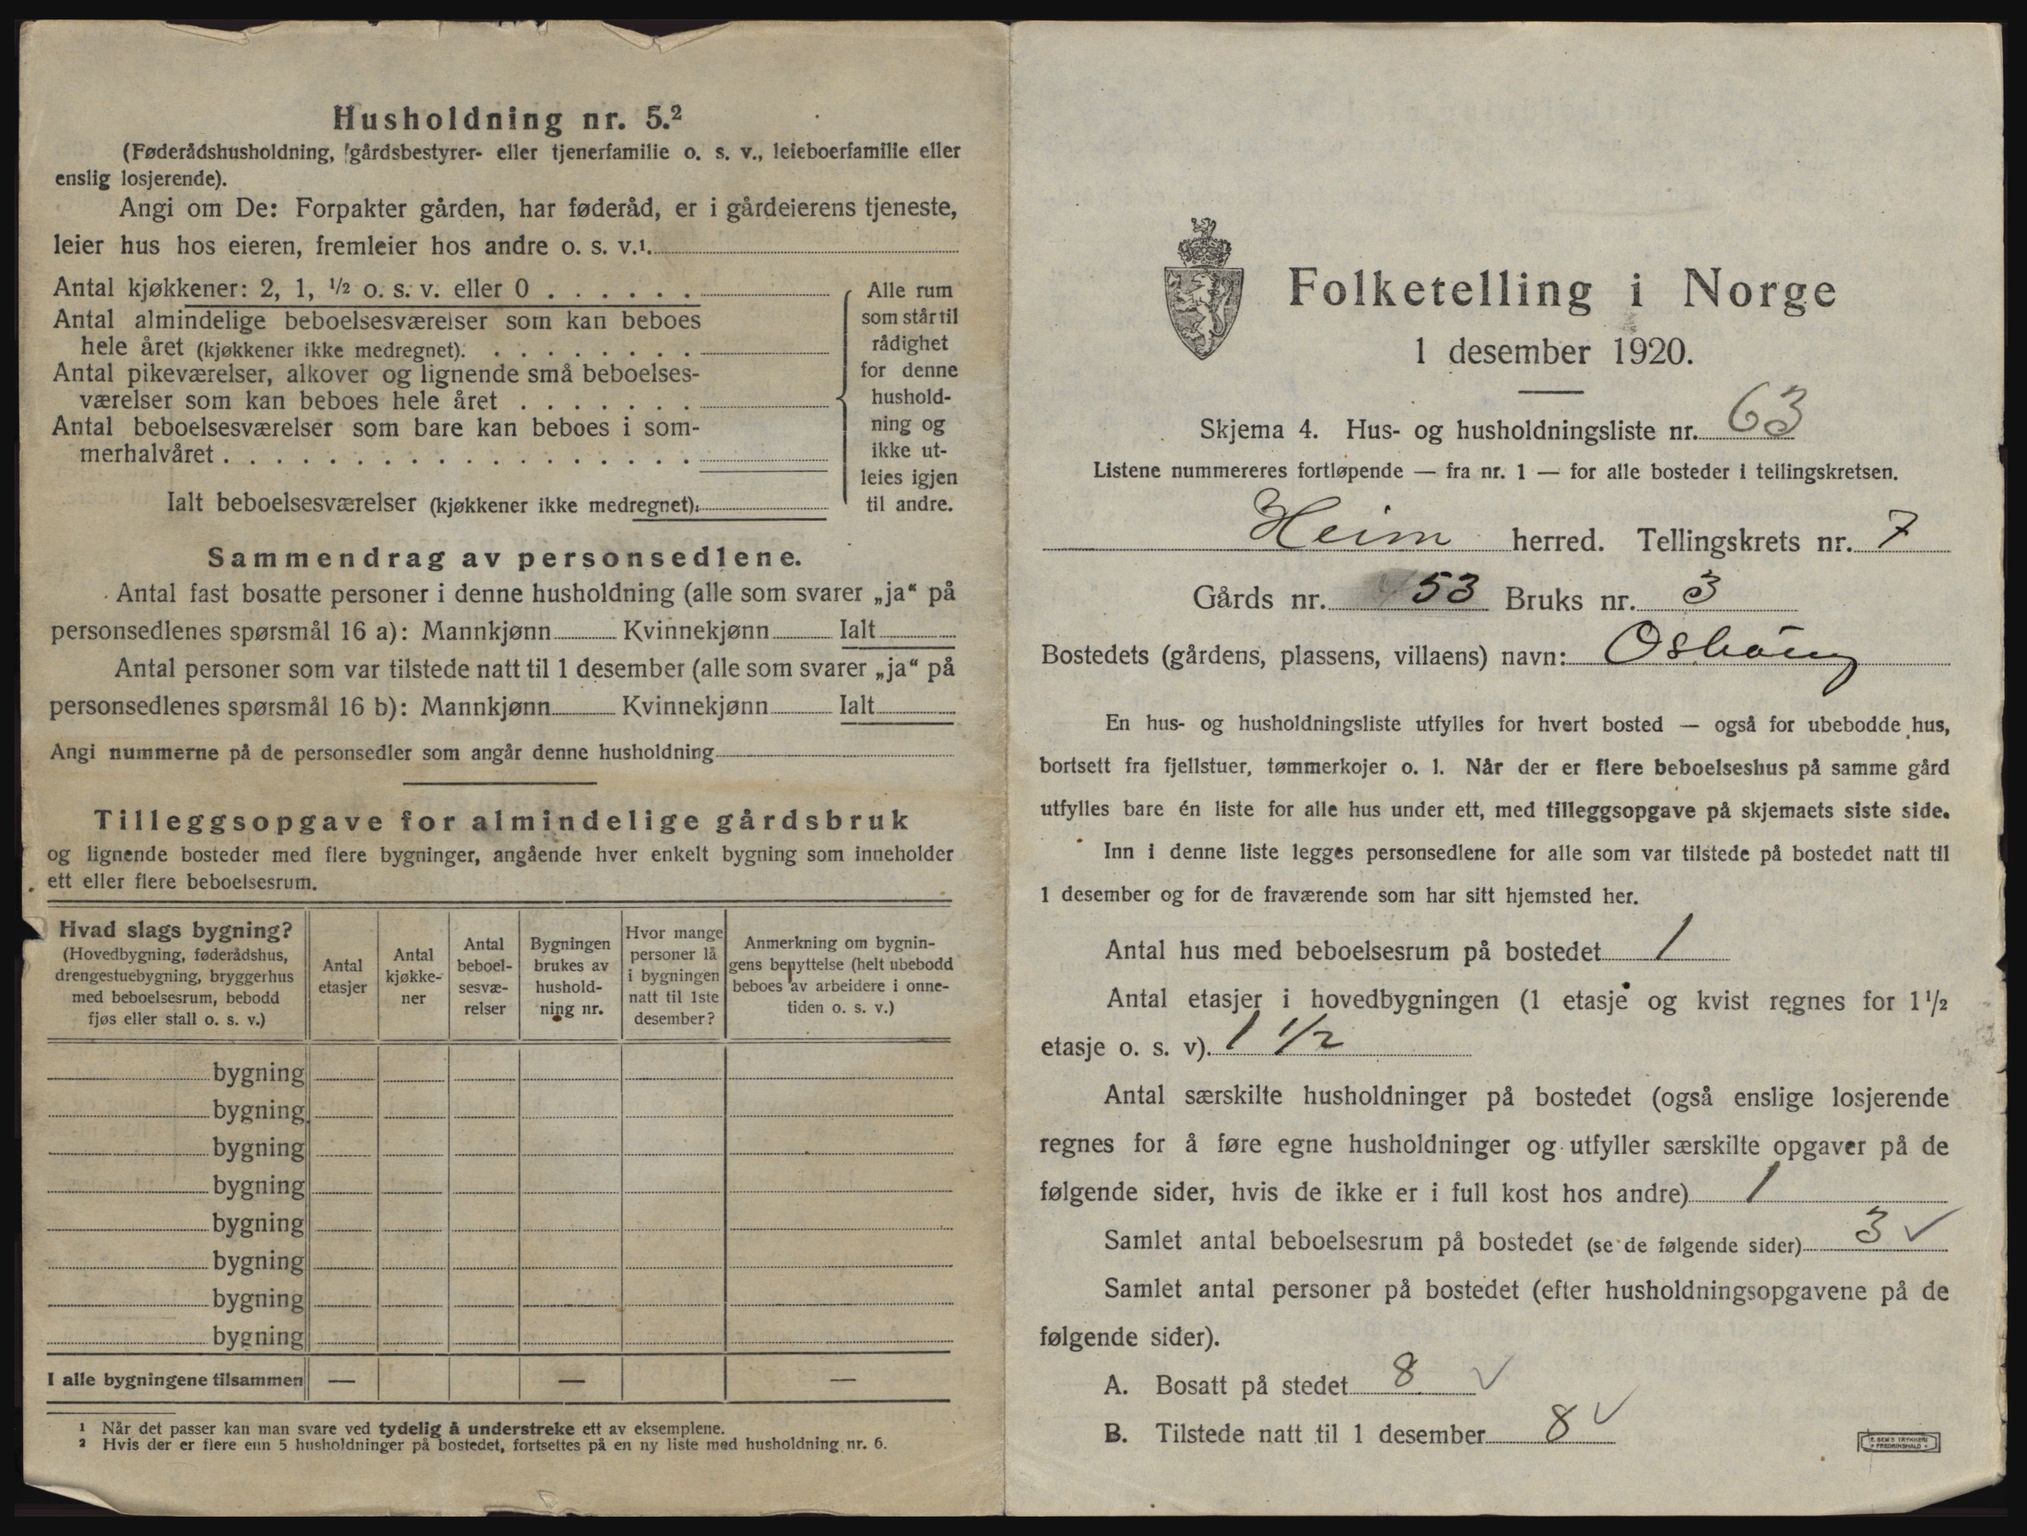 Husholdning nr. 5.²
(Føderådshusholdning, gårdsbestyrer- eller tjenerfamilie o. s. v., leieboerfamilie eller
enslig losjerende).
Angi om De: Forpakter gården, har føderåd, er i gårdeierens tjeneste,
leier hus hos eieren, fremleier hos andre o. s. v.¹.
Antal kjøkkener: 2, 1, ½ o. s. v. eller 0
Antal almindelige beboelsesværelser som kan beboes
hele året (kjøkkener ikke medregnet).
Antal pikeværelser, alkover og lignende små beboelses-
værelser som kan beboes hele året
Antal beboelsesværelser som bare kan beboes i som-
merhalvåret
Ialt beboelsesværelser (kjøkkener ikke medregnet).
Alle rum
som står til
rådighet
for denne
hushold-
ning og
ikke ut-
leies igjen
til andre.
Sammendrag av personsedlene.
Antal fast bosatte personer i denne husholdning (alle som svarer „ja“ på
personsedlenes spørsmål 16 a): Mannkjønn Kvinnekjønn Ialt
Antal personer som var tilstede natt til 1 desember (alle som svarer „ja“ på
personsedlenes spørsmål 16 b): Mannkjønn Kvinnekjønn Ialt
Angi nummerne på de personsedler som angår denne husholdning
Tilleggsopgave for almindelige gårdsbruk
og lignende bosteder med flere bygninger, angående hver enkelt bygning som inneholder
ett eller flere beboelsesrum.
Hvad slags bygning?
(Hovedbygning, føderådshus,
drengestuebygning, bryggerhus
med beboelsesrum, bebodd
fjøs eller stall o. s. v.)
Antal
etasjer
Antal
kjøkke-
ner
Antal
beboel-
sesvæ-
relser
Bygningen
brukes av
hushold-
ning nr.
Hvor mange
personer lå
i bygningen
natt til 1ste
desember?
Anmerkning om bygnin-
gens benyttelse (helt ubebodd
beboes av arbeidere i onne-
tiden o. s. v.)
bygning
bygning
bygning
bygning
bygning
bygning
bygning
bygning
I alle bygningene tilsammen — — —
¹ Når det passer kan man svare ved tydelig å understreke ett av eksemplene.
² Hvis der er flere enn 5 husholdninger på bostedet, fortsettes på en ny liste med husholdning nr. 6.
Folketelling i Norge
1 desember 1920.
Skjema 4. Hus- og husholdningsliste nr. 63
Listene nummereres fortløpende — fra nr. 1 — for alle bosteder i tellingskretsen.
Heim herred. Tellingskrets nr. 7
Gårds nr. 53 Bruks nr. 3
Bostedets (gårdens, plassens, villaens) navn:
En hus- og husholdningsliste utfylles for hvert bosted — også for ubebodde hus,
bortsett fra fjellstuer, tømmerkojer o. l. Når der er flere beboelseshus på samme gård
utfylles bare én liste for alle hus under ett, med tilleggsopgave på skjemaets siste side.
Inn i denne liste legges personsedlene for alle som var tilstede på bostedet natt til
1 desember og for de fraværende som har sitt hjemsted her.
Antal hus med beboelsesrum på bostedet 1
Antal etasjer i hovedbygningen (1 etasje og kvist regnes for 1½
etasje o. s. v). 1 ½
Antal særskilte husholdninger på bostedet (også enslige losjerende
regnes for å føre egne husholdninger og utfyller særskilte opgaver på de
følgende sider, hvis de ikke er i full kost hos andre) 1
Samlet antal beboelsesrum på bostedet (se de følgende sider) 3 ✓
Samlet antal personer på bostedet (efter husholdningsopgavene på de
følgende sider).
A. Bosatt på stedet 8 ✓
B. Tilstede natt til 1 desember 8 ✓
E. SEM'S TRYKKERI
FREDRIKSHALD